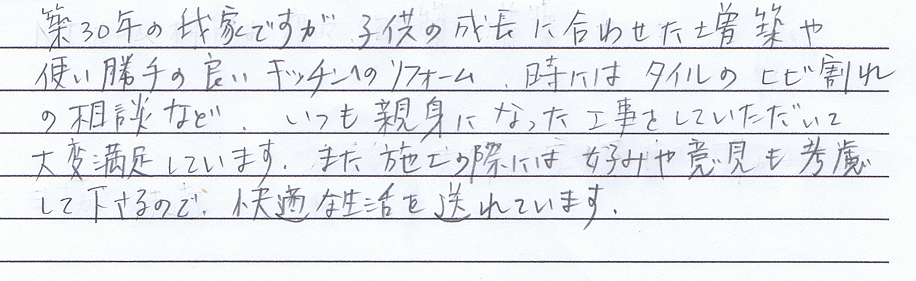 築30年の我家ですが 子供の成長に合わせた増築や
使い勝手の良いキッチンへのリフォーム、時にはタイルのヒビ割れ
の相談など、いつも親身になった工事をしていただいて
大変満足しています。また施工の際には好みや意見も考慮
して下さるので、快適な生活を送れています。